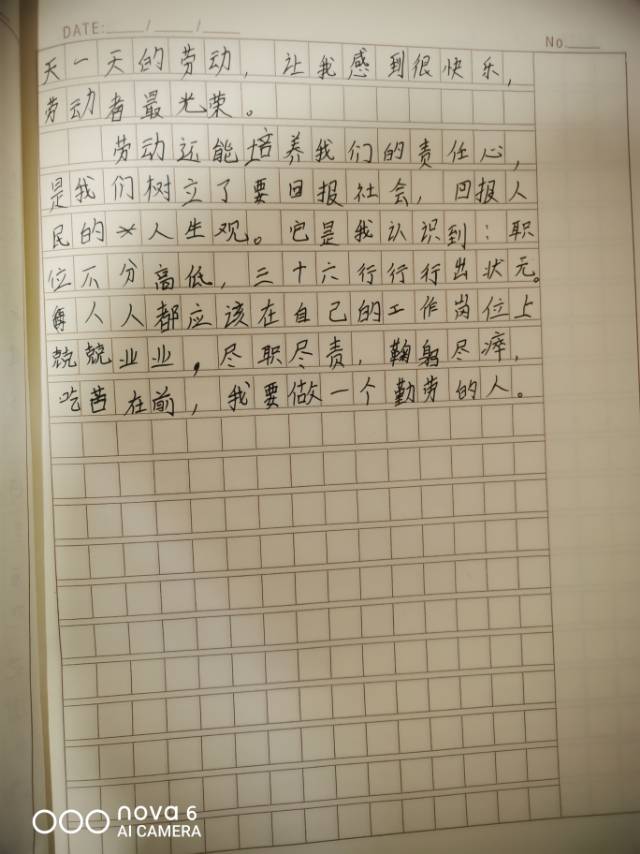 DATE: / /
No
天一天的劳动，让我感到很快乐，
劳动者最光荣。
劳动还能培养我们的责任心，
是我们树立了要回报社会，回报人
民的人生观。它是我认识到：职
位不分高低，三十六行行行出状元。
每人人都应该在自己的工作岗位上
兢兢业业，尽职尽责，鞠躬尽瘁，
吃苦在前，我要做一个勤劳的人。
nova 6
AI CAMERA